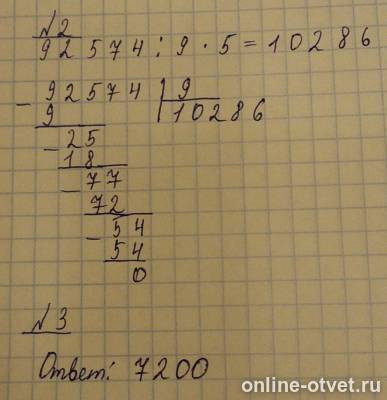 №2
92574 : 9 · 5 = 10286
- 92574 | 9
9 | 10286
- 25
18
- 77
72
- 54
54
0
№3
Ответ: 7200
online-otvet.ru